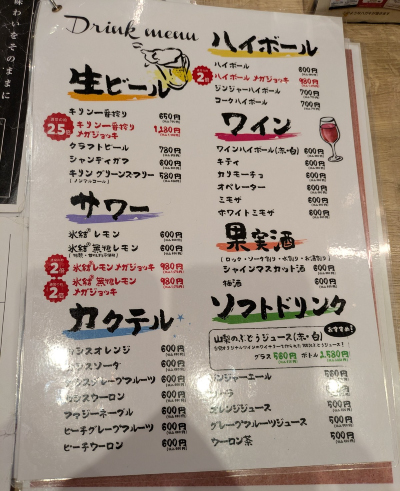 味わいをそのままに
Drink menu
生ビール
キリン一番搾り 650円
2.5倍 キリン一番搾り メガジョッキ 1,180円
クラフトビール 780円
シャンディガフ 600円
キリン グリーンズフリー 580円
(ノンアルコール)
サワー
氷結®レモン 600円
氷結®無糖レモン 600円
2倍 氷結®レモンメガジョッキ 980円
2倍 氷結®無糖レモン メガジョッキ 980円
カクテル
カシスオレンジ 600円
カシスソーダ 600円
カシスグレープフルーツ 600円
カシスウーロン 600円
ファジーネーブル 600円
ピーチグレープフルーツ 600円
ピーチウーロン 600円
ハイボール
ハイボール 600円
2倍 ハイボール メガジョッキ 980円
ジンジャーハイボール 700円
コークハイボール 700円
ワイン
ワインハイボール(赤・白) 600円
キティ 600円
カリモーチョ 600円
オペレーター 600円
ミモザ 600円
ホワイトミモザ 600円
果実酒
(ロック・ソーダ割り・水割り・お湯割り)
シャインマスカット酒 600円
梅酒 600円
ソフトドリンク
おすすめ!
山梨のぶどうジュース(赤・白)
グラス 580円 ボトル 2,580円
ジンジャーエール 580円
コーラ 500円
オレンジジュース 500円
グレープフルーツジュース 500円
ウーロン茶 500円